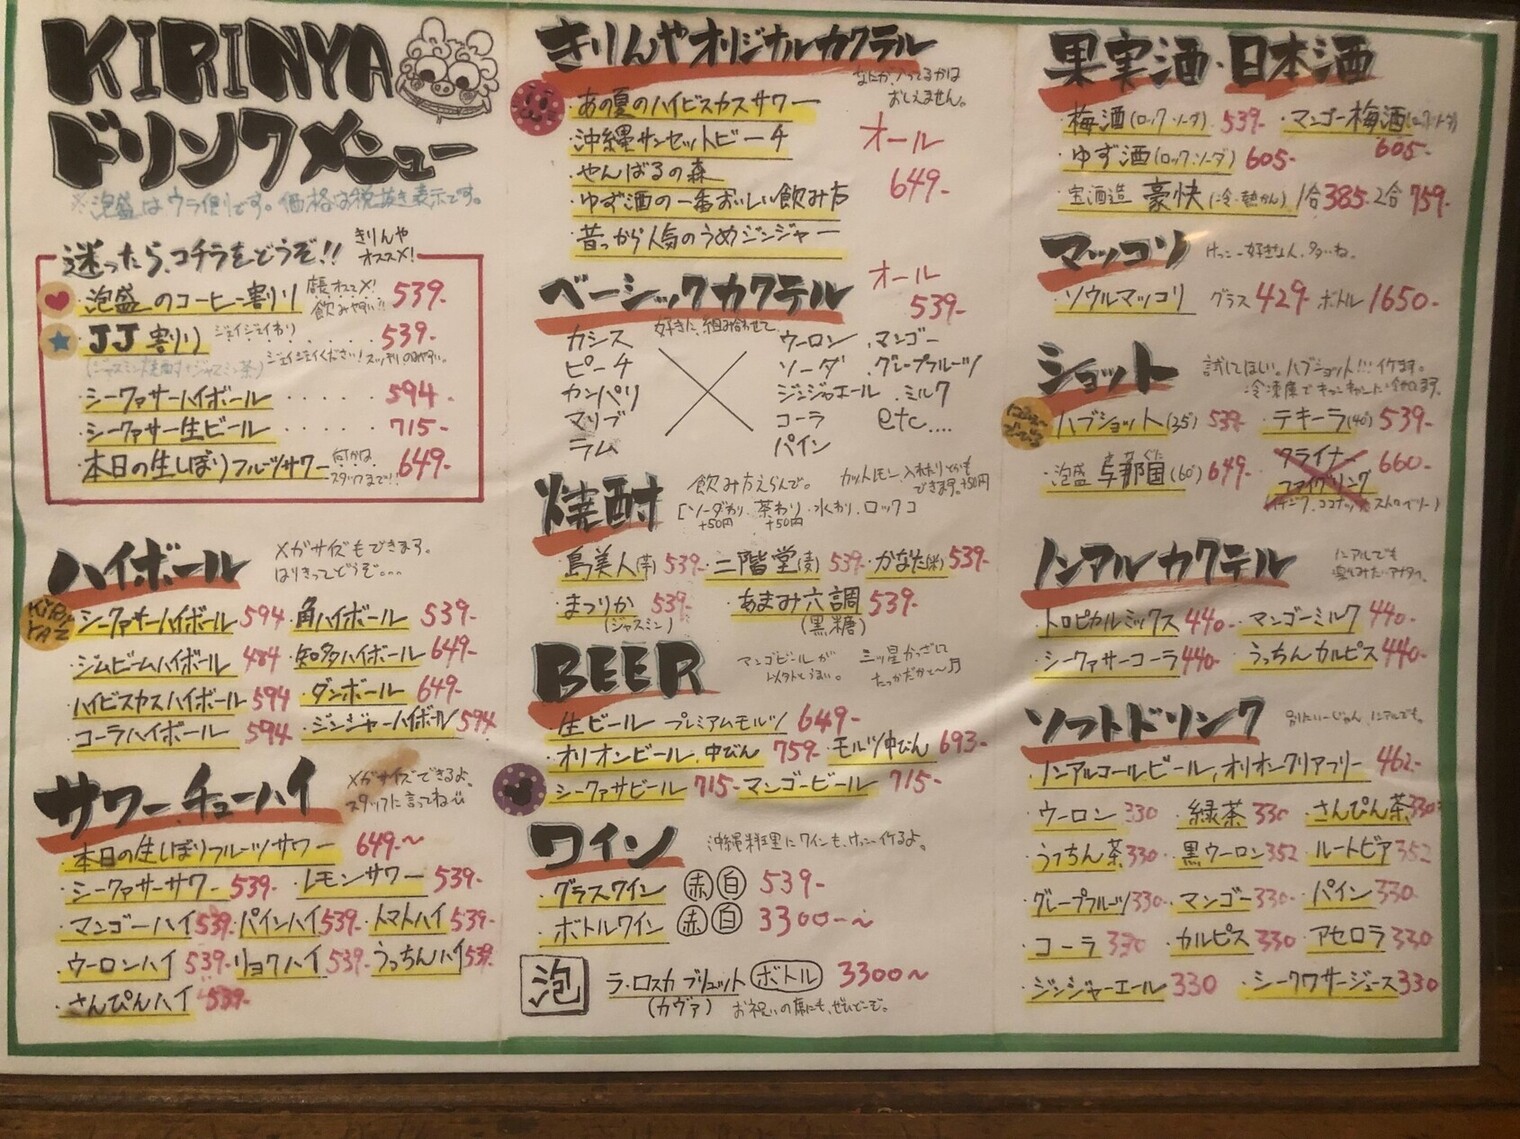 KIRINYA
ドリンクメニュー
※泡盛はウラ側です。価格は税抜き表示です。
迷ったら、コチラをどうぞ!!
きりんや
オススメ!
泡盛のコーヒー割り 539-
飲みやすい!!
JJ割り ジェイジェイわり 539-
ジェイジェイください!スッキリのみやすい。
(ジャスミン焼酎+ジャスミン茶)
シークァサーハイボール 594-
シークァサー生ビール 715-
本日の生しぼりフルーツサワー 何かは スタッフまで!! 649-
ハイボール
メガサイズもできます。
はりきってどうぞ…
シークァサーハイボール 594 ・角ハイボール 539-
・ジムビームハイボール 484 ・知多ハイボール 649-
・ハイビスカスハイボール 594 ・ダンボール 649-
・コーラハイボール 594 ・ジンジャーハイボール 594
サワー・チューハイ
メガサイズできるよ。
スタッフに言ってね
・本日の生しぼりフルーツサワー 649-~
・シークァサーサワー 539- ・レモンサワー 539-
・マンゴーハイ 539 ・パインハイ 539- ・トマトハイ 539-
・ウーロンハイ 539- ・リョクハイ 539- ・うっちんハイ 539-
・さんぴんハイ 539-
きりんやオリジナルカクテル
なにが入ってるかは
おしえません。
・あの夏のハイビスカスサワー
・沖縄サンセットビーチ
・やんばるの森
・ゆず酒の一番おいしい飲み方
・昔っから人気のうめジンジャー
オール
649-
ベーシックカクテル
オール
539-
好きに、組み合わせて
カシス
ピーチ
カンパリ
マリブ
ラム
ウーロン ・マンゴー
ソーダ ・グレープフルーツ
ジンジャエール ・ミルク
コーラ etc....
パイン
焼酎
飲み方えらんで。
[ソーダわり・茶わり・水わり・ロック]
+50円 +50円
カットレモン、入れたりとかも
できます。+50円
・島美人(芋) 539- ・二階堂(麦) 539- ・かなた(米) 539-
・まつりか 539- ・あまみ六調 539-
(ジャスミン) (黒糖)
BEER
マンゴビールが
以外とうまい。
・生ビール プレミアムモルツ 649-
・オリオンビール、中びん 759- ・モルツ中びん 693-
・シークァサビール 715- ・マンゴービール 715-
ワイン
沖縄料理にワインも、けっこーイケるよ。
・グラスワイン 赤 白 539-
・ボトルワイン 赤 白 3300-~
泡
ラ・ロスカ ブリュット ボトル 3300~
(カヴァ) お祝いの席にも、ぜひどーぞ。
果実酒・日本酒
・梅酒(ロック・ソーダ) 539- ・マンゴー梅酒(ロック・ソーダ) 605-
・ゆず酒(ロック・ソーダ) 605-
・宝酒造 豪快(冷・熱かん) 1合385- 2合759-
マッコリ
けっこー好きな人、多いね。
・ソウルマッコリ グラス 429- ボトル 1650-
ショット
試してほしい。ハブショット!!!イケます。
冷凍庫でキンキンに冷やしてます。
・ハブショット(35°) 539- ・テキーラ(40°) 539-
・泡盛 与那国(60°) 649- ・クライナー
ファイグリング 660-
ノンアルカクテル
ノンアルでも
楽しみたいアナタへ。
・トロピカルミックス 440- ・マンゴーミルク 440-
・シークァサーコーラ 440- ・うっちんカルピス 440-
ソフトドリンク
別にいーじゃん、ノンアルでも。
・ノンアルコールビール、オリオンクリアフリー 462-
・ウーロン 330 ・緑茶 330 ・さんぴん茶 330
・うっちん茶 330 ・黒ウーロン 352 ・ルートビア 352
・グレープフルーツ 330- ・マンゴー 330- ・パイン 330-
・コーラ 330 ・カルピス 330 ・アセロラ 330
・ジンジャーエール 330 ・シークワサージュース 330